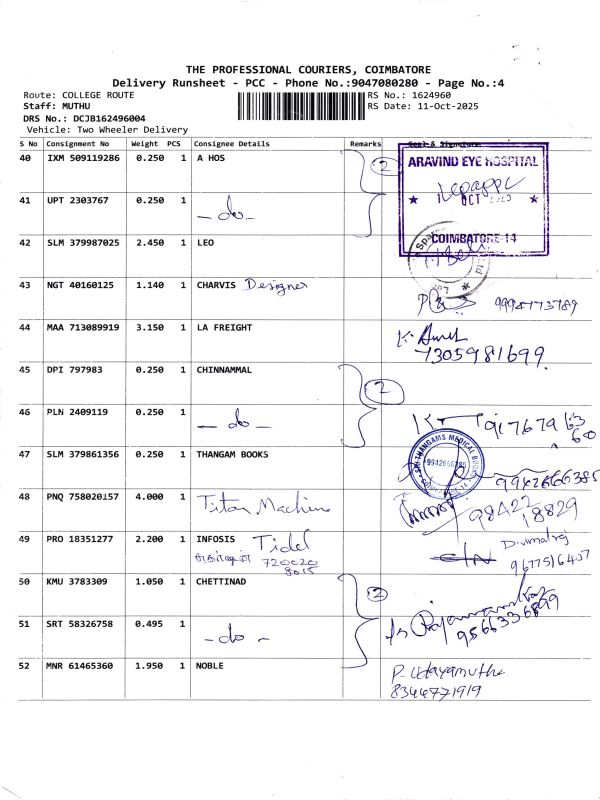 THE PROFESSIONAL COURIERS, COIMBATORE
Delivery Runsheet - PCC - Phone No.:9047080280 - Page No.:4
Route: COLLEGE ROUTE
RS No.: 1624960
Staff: MUTHU
RS Date: 11-Oct-2025
DRS No.: DCJB162496004
Vehicle: Two Wheeler Delivery
S No Consignment No Weight PCS Consignee Details Remarks Seal & Signature
40 IXM 509119286 0.250 1 A HOS 2
ARAVIND EYE HOSPITAL
OCT
COIMBATORE-14
41 UPT 2303767 0.250 1 - do -
42 SLM 379987025 2.450 1 LEO
43 NGT 40160125 1.140 1 CHARVIS Designer
9994773789
44 MAA 713089919 3.150 1 LA FREIGHT
7305981699
45 DPI 797983 0.250 1 CHINNAMMAL 2
46 PLN 2409119 0.250 1 - do -
917679 63
60
47 SLM 379861356 0.250 1 THANGAM BOOKS
SRI THANGAMS MEDICAL BOOKS
9942666385
9942666385
48 PNQ 758020157 4.000 1 Titan Machine
98422
18829
49 PRO 18351277 2.200 1 INFOSIS Tidel
720020
8015
9677516407
50 KMU 3783309 1.050 1 CHETTINAD 2
9566336899
51 SRT 58326758 0.495 1 - do -
52 MNR 61465360 1.950 1 NOBLE
P. Udayamuthu
8344771919